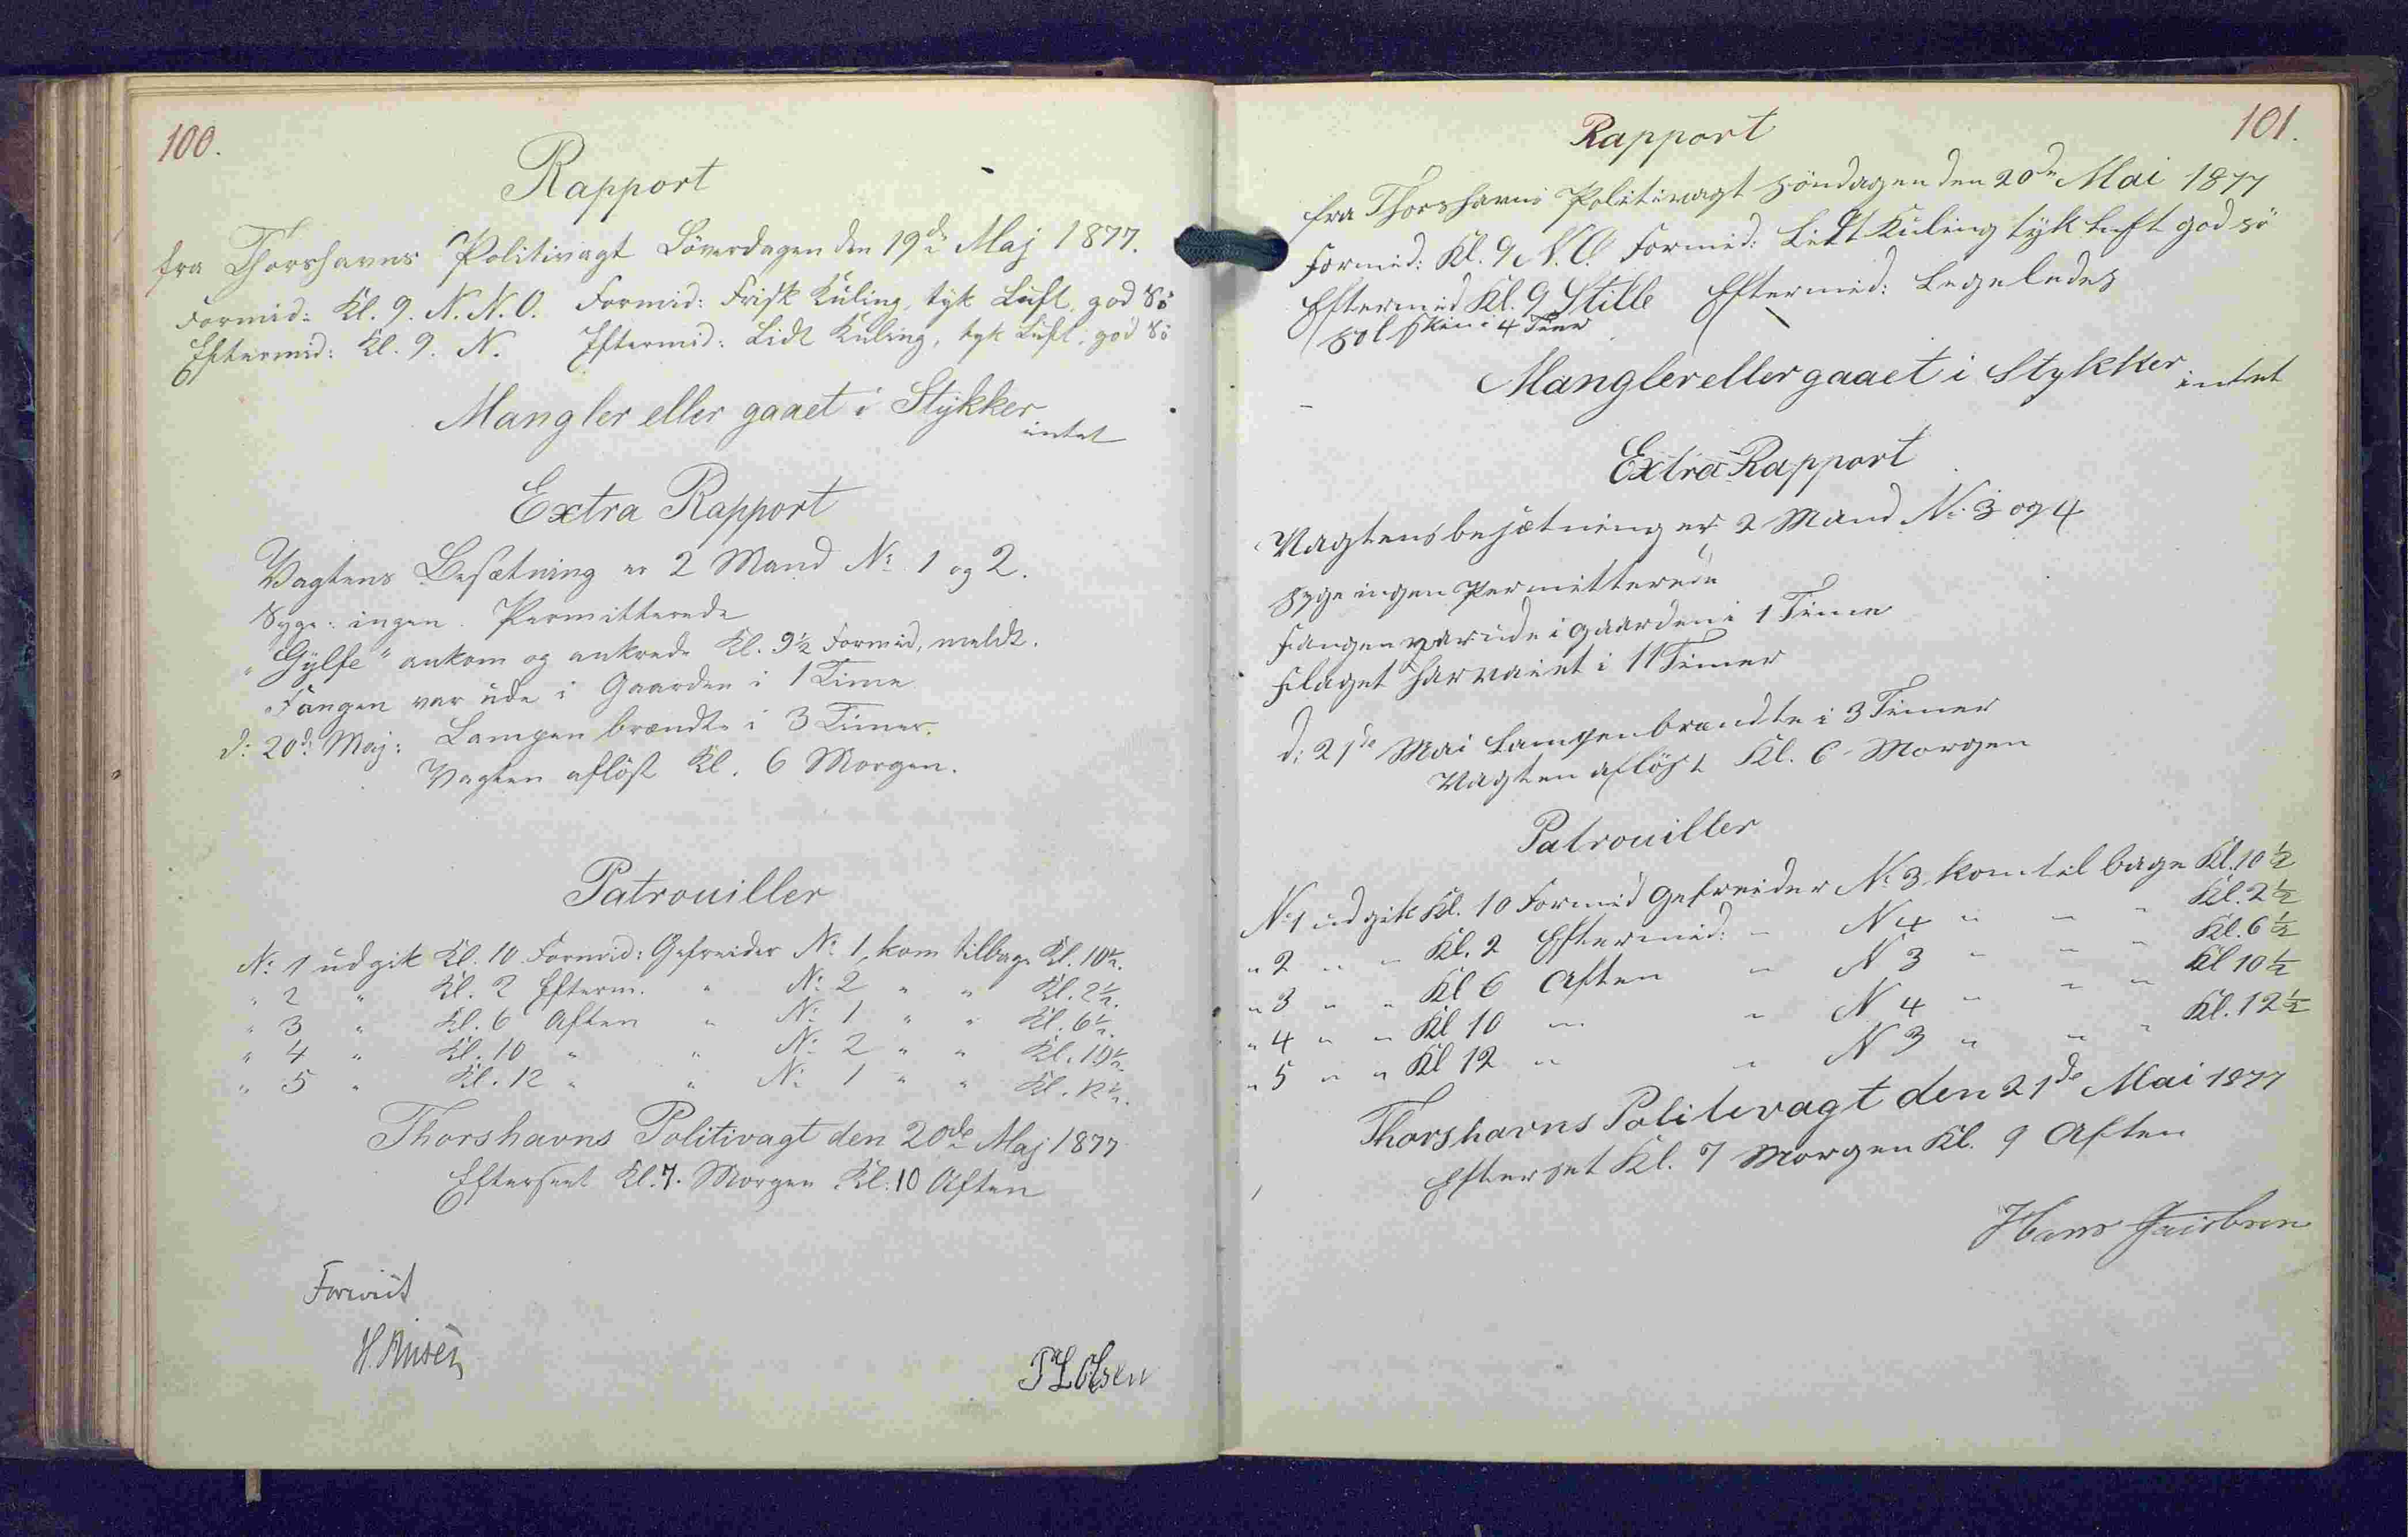 100.
Rapport
fra Thorshavns Politivagt Löverdagen den 19de Maj 1877.
Formid: Kl. 9. N.N.O. Formid: Frisk Kuling, tyk Luft, god Sö
Eftermid: Kl. 9. N. Eftermid: Lidt Kuling, tyk Luft, god Sö
Mangler eller gaaet i Stykker
intet
Extra Rapport
Vagtens Besætning er 2 Mand No 1 og 2.
Syge: ingen. Permitterede
"Gylfe" ankom og ankrede Kl. 9½ Formid, meldt.
Fangen var ude i Gaarden i 1 Time
d: 20de Maj: Lampen brændte i 3 Timer.
Vagten aflöst Kl. 6 Morgen.
Patrouiller
No 1 udgik Kl. 10 Formid: Gefreider No 1, kom tilbage Kl. 10½.
" 2 " Kl. 2 Efterm. " No 2 " " Kl. 2½.
" 3 " Kl. 6 Aften " No 1 " " Kl. 6½.
" 4 " Kl. 10 " " No 2 " " Kl. 10½.
" 5 " Kl. 12 " " No 1 " " Kl. 12½.
Thorshavns Politivagt den 20de Maj 1877
Efterseet Kl. 7. Morgen Kl. 10 Aften
Foreviist
H. Müsen
P L Olsen
101.
Rapport
fra Thorshavns Politivagt Söndagen den 20de Mai 1877
Formid: Kl. 9 N.O. Formid: Lidt Kuling tyk Luft god Sö
Eftermid Kl. 9 Stille Eftermid: Legeledes
Solskin i 4 Timer
Mangler eller gaaet i Stykker
intet
Extra Rapport
Vagtens besætning er 2 Mand No 3 og 4
Syge ingen Permitterede
Fangen var ude i gaarden i 1 Time
Flaget har vaiet i 11 Timer
d: 21de Mai Lampen brændte i 3 Timer
Vagten aflöst Kl. 6 Morgen
Patrouiller
No 1 udgik Kl. 10 Formid Gefreider No 3 kom tilbage Kl. 10½
" 2 " " Kl. 2 Eftermid: " N 4 " " " Kl. 2½
" 3 " " Kl 6 Aften " N 3 " " " Kl. 6½
" 4 " " Kl 10 " " N 4 " " " Kl 10½
" 5 " " Kl 12 " " N 3 " " " Kl. 12½
Thorshavns Politivagt den 21de Mai 1877
Efterset Kl. 7 Morgen Kl. 9 Aften
Hans Jacobsen